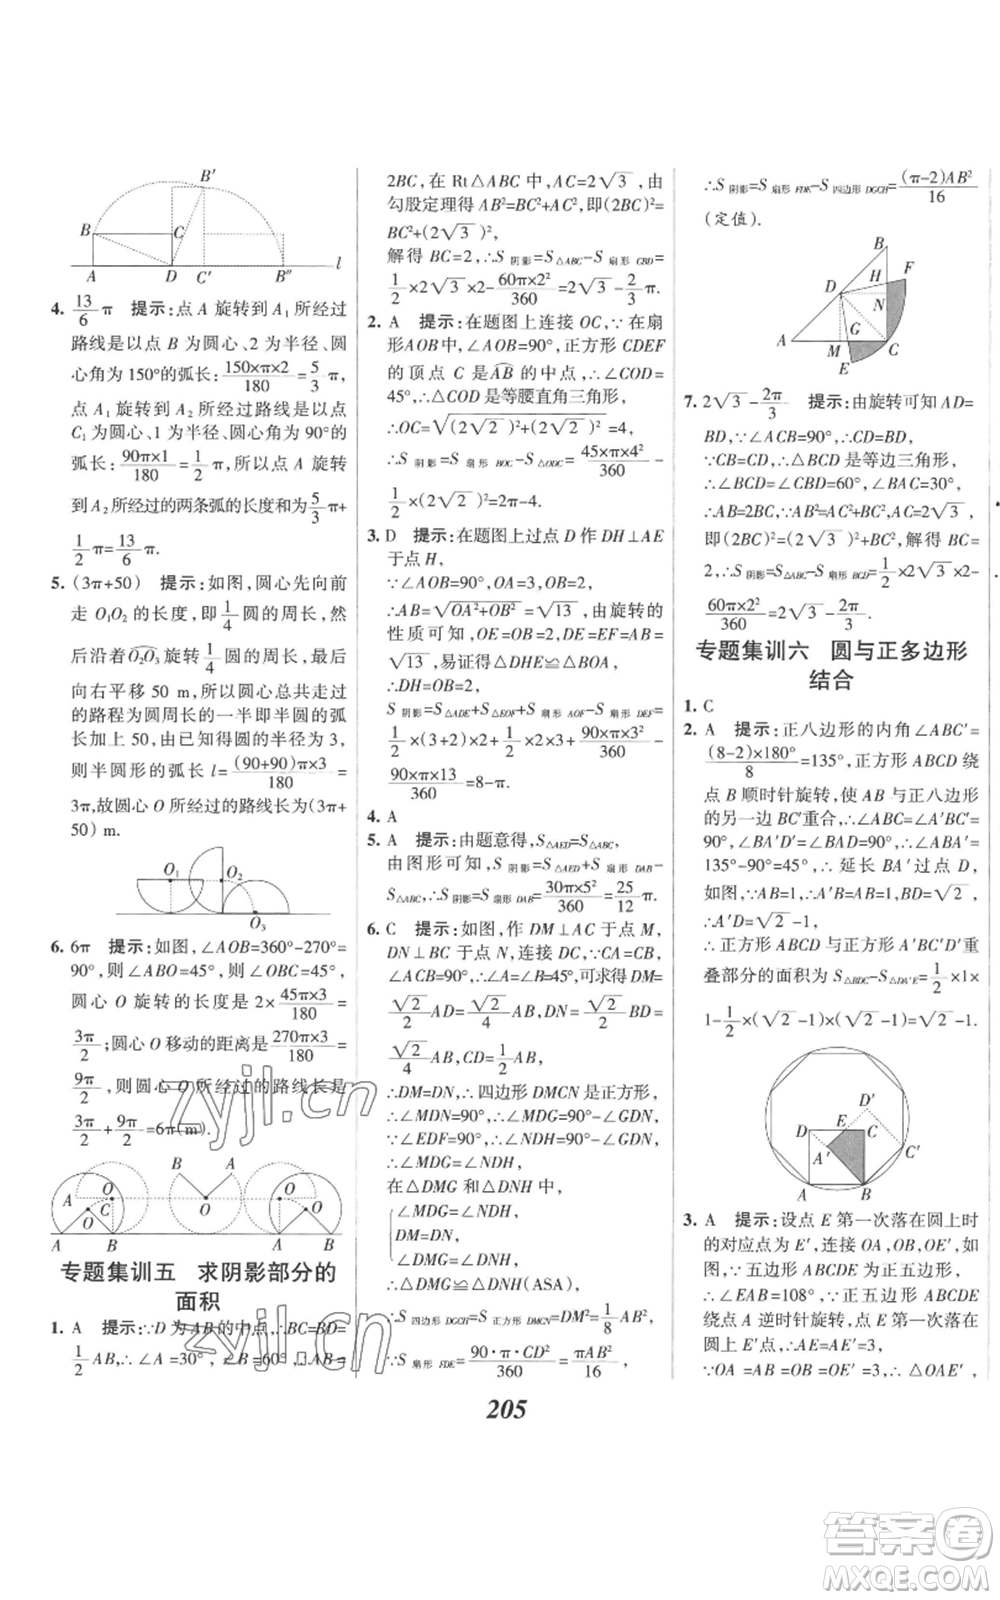 B′
B C
A D C′ B″ l
4. 13/6 π 提示:点 A 旋转到 A₁ 所经过
路线是以点 B 为圆心、2 为半径、圆
心角为 150°的弧长:150×π×2/180=5/3 π,
点 A₁ 旋转到 A₂ 所经过路线是以点
C₁ 为圆心、1 为半径、圆心角为 90°的
弧长:90π×1/180=1/2 π,所以顶点 A 旋转
到 A₂ 所经过的两条弧的长度和为5/3π+
1/2 π=13/6 π.
5. (3π+50) 提示:如图,圆心先向前
走 O₁O₂ 的长度,即1/4圆的周长,然
后沿着O₂O₃旋转1/4圆的周长,最后
向右平移 50 m,所以圆心总共走过
的路程为圆周长的一半即半圆的弧
长加上 50,由已知得圆的半径为 3,
则半圆形的弧长 l=(90+90)π×3/180=
3π,故圆心 O 所经过的路线长为(3π+
50) m.
O₁ O₂
O₃
6. 6π 提示:如图,∠AOB=360°-270°=
90°,则∠AOB=45°,则∠OBC=45°,
圆心 O 旋转的长度是 2×45π×3/180=
3π/2;圆心 O 移动的距离是270π×3/180=
9π/2,则圆心 O 所经过的路线长是
3π/2+9π/2=6π(m).
A O C O A B B
B A O O
O O A B
专题集训五 求阴影部分的
面积
1. A 提示:∵D 为 AB 的中点,∴BC=BD=
1/2 AB,∴∠A=30°,∠B=60°.∵AC=
2BC,在 Rt△ABC 中,AC=2√3,由
勾股定理得 AB²=BC²+AC²,即(2BC)²=
BC²+(2√3)²,
解得 BC=2,∴S阴影=S△ABC-S扇形CBD=
1/2×2√3×2-60π×2²/360=2√3-2/3π.
2. A 提示:在题图上连接 OC,∵在扇
形AOB 中,∠AOB=90°,正方形 CDEF
的顶点 C 是AB的中点,∴∠COD=
45°,∴△COD 是等腰直角三角形,
∴OC=√((2√2)²+(2√2)²)=4,
∴S阴影=S扇形BOC-S△ODC=45×π×4²/360-
1/2×(2√2)²=2π-4.
3. D 提示:在题图上过点 D 作 DH⊥AE
于点 H,
∵∠AOB=90°,OA=3,OB=2,
∴AB=√(OA²+OB²)=√13,由旋转的
性质可知,OE=OB=2,DE=EF=AB=
√13,易证得△DHE≌△BOA,
∴DH=OB=2,
S阴影=S△ADE+S△EOF+S扇形AOF-S扇形DEF=
1/2×(3+2)×2+1/2×2×3+90×π×3²/360-
90×π×13/360=8-π.
4. A
5. A 提示:由题意得,S△AED=S△ABC,
由图形可知,S阴影=S△AED+S扇形DAB-
S△ABC,∴S阴影=S扇形DAB=30π×5²/360=25/12 π.
6. C 提示:如图,作 DM⊥AC 于点 M,
DN⊥BC 于点 N,连接 DC,∵CA=CB,
∠ACB=90°,∴∠A=∠B=45°,可求得 DM=
√2/2 AD=√2/4 AB,DN=√2/2 BD=
√2/4 AB,CD=1/2 AB,
∴DM=DN,∴四边形 DMCN 是正方形,
∴∠MDN=90°,∴∠MDG=90°-∠GDN,
∵∠EDF=90°,∴∠NDH=90°-∠GDN,
∴∠MDG=∠NDH,
在△DMG 和△DNH 中,
∠MDG=∠NDH,
DM=DN,
∠DMG=∠DNH,
∴△DMG≌△DNH(ASA),
∴S四边形DGCH=S正方形DMCN=DM²=1/8 AB²,
∵S扇形FDE=90·π·CD²/360=πAB²/16,
∴S阴影=S扇形FDE-S四边形DGCH=(π-2)AB²/16
(定值).
B H F D N G A M E C
7. 2√3-2π/3 提示:由旋转可知 AD=
BD,∵∠ACB=90°,∴CD=BD,
∵CB=CD,∴△BCD 是等边三角形,
∴∠BCD=60°,∴∠BAC=30°,
∴AB=2BC,∵AB²=AC²+BC²,
即(2BC)²=(2√3)²+BC²,解得 BC=
2,∴S阴影=S△ABC-S扇形BCD=1/2×2√3×2-
60π×2²/360=2√3-2π/3.
专题集训六 圆与正多边形
结合
1. C
2. A 提示:正八边形的内角∠ABC′=
(8-2)×180°/8=135°,正方形 ABCD 绕
点 B 顺时针旋转,使 AB 与正八边形
的另一边 BC′重合,∴∠ABC=∠A′BC′=
90°,∠BA′D′=∠BAD=90°,∴∠ABA′=
135°-90°=45°,∴延长 BA′过点 D,
如图,∵AB=1,∴A′B=1,BD=√2,
∴A′D=√2-1,
∴正方形 ABCD 与正方形 A′BC′D′重
叠部分的面积为 S△BDC-S△DA′E=1/2×1×
1-1/2×(√2-1)×(√2-1)=√2-1.
D′
D E C
A′ C′
A B
3. A 提示:设点 E 第一次落在圆上时
的对应点为 E′,连接 OA,OB,OE′,
如图,∵五边形 ABCDE 为正五边形,
∴∠EAB=108°,∵正五边形 ABCDE
绕点 A 逆时针旋转,点 E 第一次落在
圆上 E′点,∴AE=AE′=3,
∵OA=AE′=OE′=3,∴△OAE′,
205
zyjl.cn
zyjl.cn
答案圈
MXQE.COM